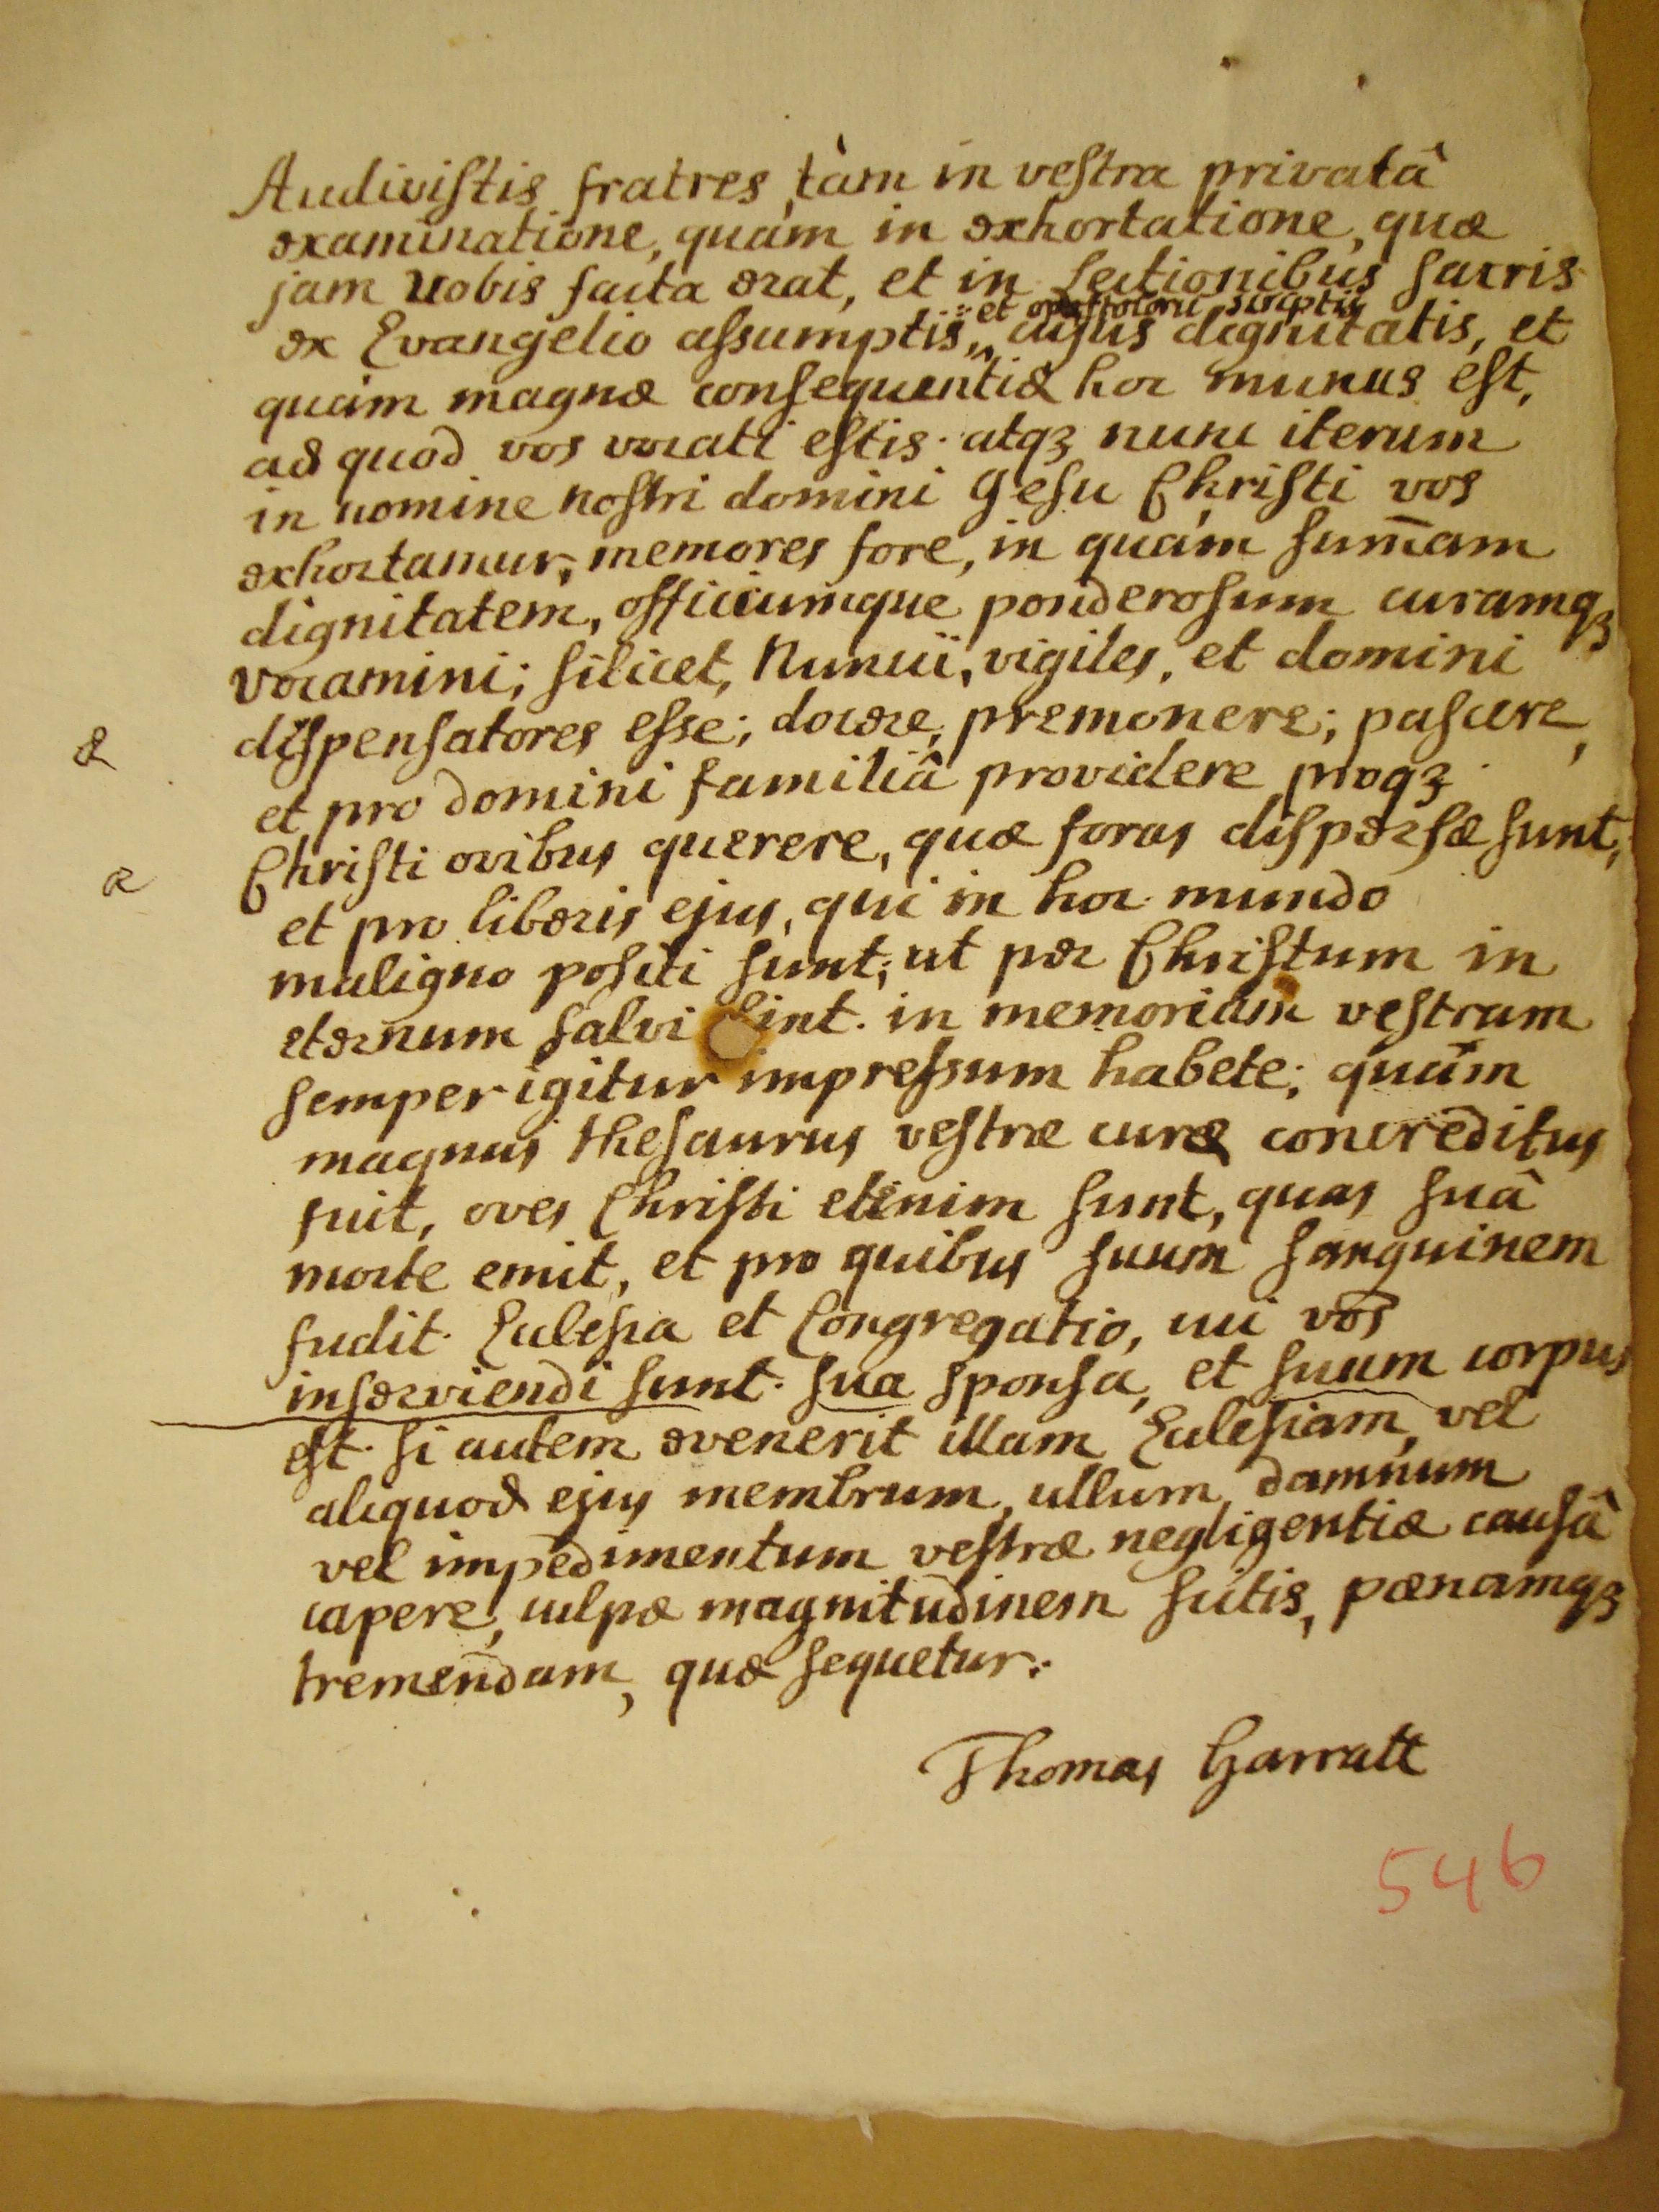 Audivistis fratres, tàm in vestra privatâ
examinatione, quám in exhortatione, quæ
jam vobis facta erat, et in Lectionibus sacris
et apostolorū scriptis
ex Evangelio assumptis, cujus dignitatis, et
quám magnæ consequentiæ hoc munus est,
ad quod vos vocati estis. atqꝫ nunc iterum
in nomine nostri domini Jesu Christi vos
exhortamur, memores fore, in quám sum̄am
dignitatem, officiumque ponderosum curamqꝫ
vocamini; silicet, Nuncii, vigiles, et domini
dispensatores esse; docere, premonere; pascere,
æ
et pro domini familiâ providere proqꝫ
Christi ovibus querere, quæ foras dispersæ sunt,
æ
et pro liberis ejus, qui in hoc mundo
maligno positi sunt; ut per Christum in
eternum salvi sint. in memoriam vestram
semper igitur impressum habete; quám
magnus thesaurus vestræ curæ concreditus
fuit, oves Christi etenim sunt, quas suâ
morte emit, et pro quibus suum sanguinem
fudit. Eclesia et Congregatio, cui vos
inserviendi sunt. sua sponsa, et suum corpus
est. si autem evenerit illam Eclesiam, vel
aliquod ejus membrum, ullum damnum
vel impedimentum vestræ negligentiæ causâ
capere, culpæ magnitudinem scitis, pænamqꝫ
tremendam, quæ sequetur.
Thomas Garratt
546